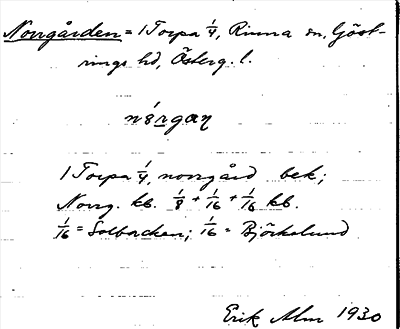 Norrgården = 1 Torpa 1/4, Rinna sn, Göst-
rings hd, Österg. l.
nórgan
1 Torpa 1/4, norrgård bek;
Norrg. kb. 1/8 + 1/16 + 1/16 kb.
1/16 = Solbacken; 1/16 = Björkelund
Erik Alm 1930